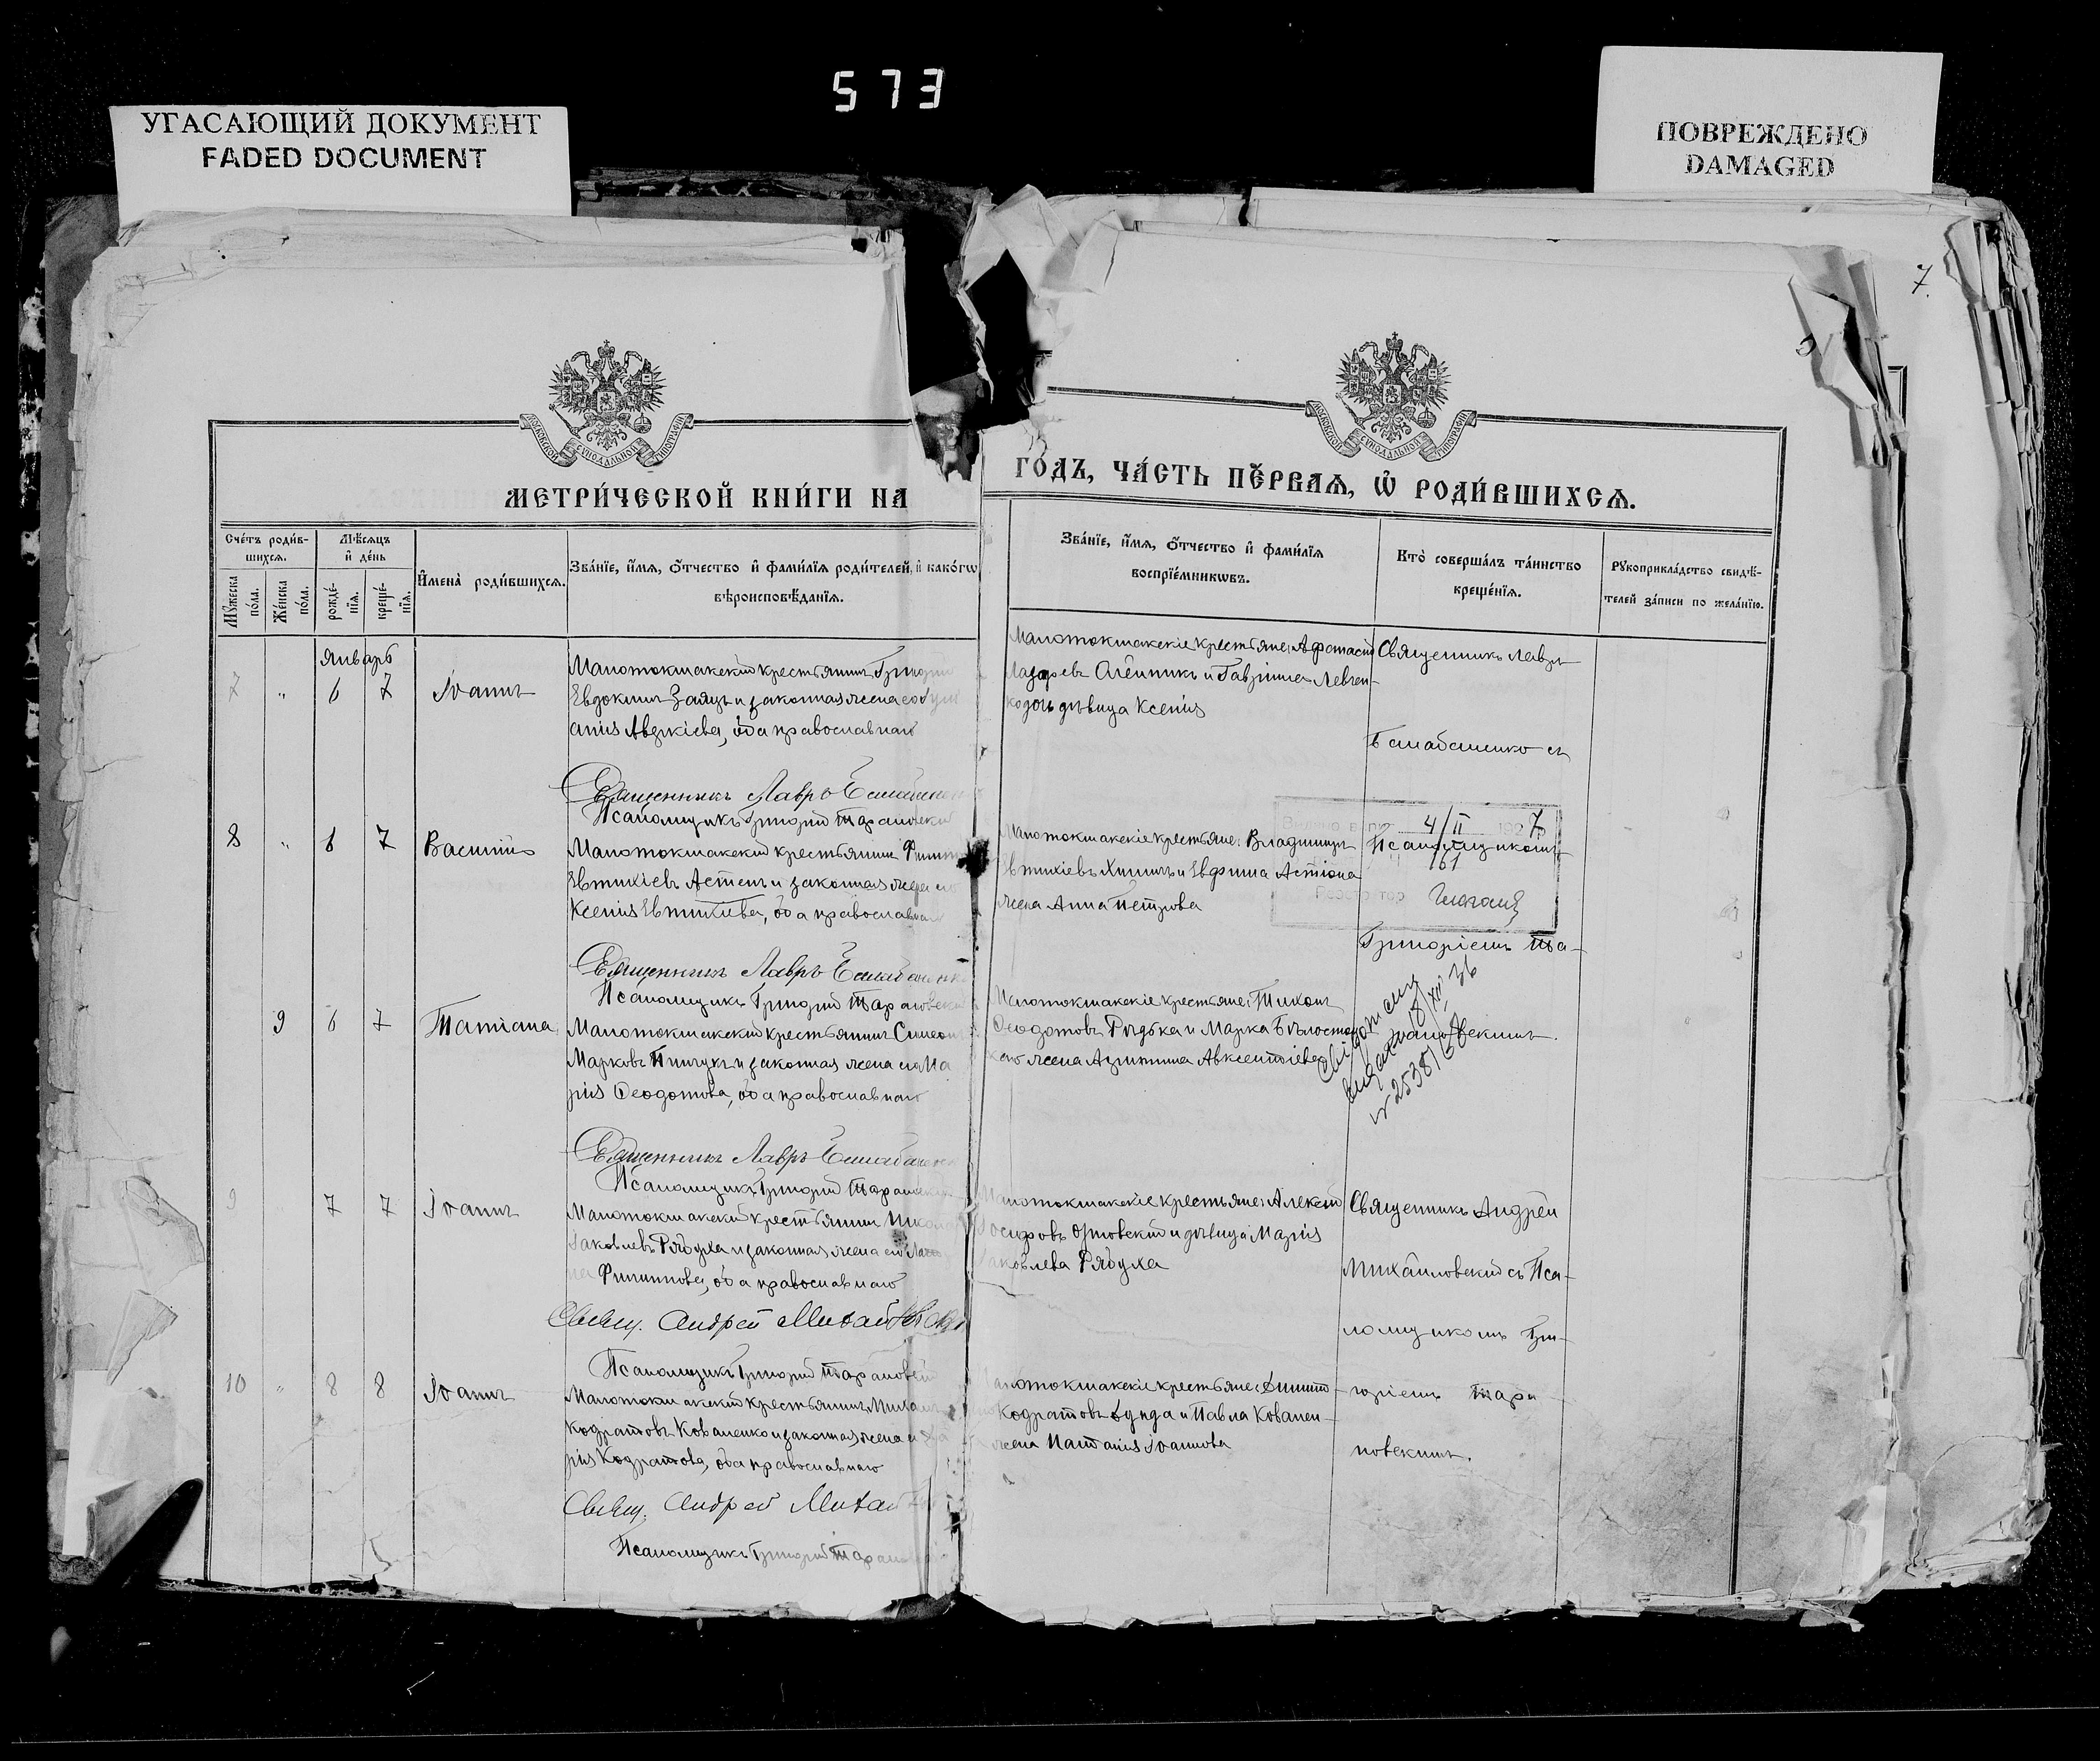 573
УГАСАЮЩИЙ ДОКУМЕНТ
FADED DOCUMENT
ПОВРЕЖДЕНО
DAMAGED
7.
МОСКОВСКОЙ СУНОДАЛЬНОЙ ТИПОГРАФІИ
МОСКОВСКОЙ СУНОДАЛЬНОЙ ТИПОГРАФІИ
МЕТРИ́ЧЕСКОЙ КНИ́ГИ НА
ГО́ДЪ, ЧА́СТЬ ПЕ́РВАѦ, Ѡ҆ РОДИ́ВШИХСѦ.
Сче́тъ роди́в-
шихсѧ.
Мꙋжеска по́ла.
Же́нска по́ла.
Мѣ́сѧцъ
и҆ де́нь
рожде́-
нїѧ.
креще́-
нїѧ.
И҆мена̀ роди́вшихсѧ.
Зва́нїе, и҆́мѧ, ѻ҆́тчество и҆ фами́лїѧ роди́телей, и҆ како́гѡ
вѣроисповѣ́данїѧ.
Зва́нїе, и҆́мѧ, ѻ҆́тчество и҆ фами́лїѧ
воспрїе́мникѡвъ.
Кто̀ соверша́лъ та́инство
креще́нїѧ.
Рꙋкоприкла́дство свидѣ́-
телей за́писи по жела́нїю.
Январь
7 " 6 7 Іоаннъ
Малотокмакскій крестьянинъ Григорій
Евдокимъ Заяцъ и законная жена его
анія Авдкіева, оба православнаго
Священникъ Лавръ
Псаломщикъ Григорій Тарановскій
Малотокмакскіе крестьяне: Афанасій
Лазаревъ Олейникъ и Гавріила Левчен-
ко дочь дѣвица Ксенія
Священникъ Лавръ
Балабаненко съ
8 " 6 7 Василій
Малотокмакскій крестьянинъ
Евтихіевъ и законная жена его
Ксенія Евтихіева, оба православнаго
Священникъ Лавръ
Псаломщикъ Григорій Тарановскій
Малотокмакскіе крестьяне: Владиміръ
Евтихіевъ и Евфима
жена Анна Петрова
4/II 1927
Псаломщикомъ
61
Григоріемъ Та-
9 6 7 Татіана
Малотокмакскій крестьянинъ Симеонъ
Марковъ Пинчукъ и законная жена его Ма
рія Ѳеодотова, оба православнаго
Священникъ Лавръ
Псаломщикъ Григорій Тарановскій
Малотокмакскіе крестьяне: Тихонъ
Ѳеодотовъ Рѣдька и Марка
жена Агрипина Авксентіева
рановскимъ.
18/XII 36
№ 2538/
9 7 7 Іоаннъ
Малотокмакскій крестьянинъ Николай
Іаковлевъ Рябуха и законная жена его
Филиппова, оба православнаго
Свящ. Андрей Михайловскій
Псаломщикъ Григорій Тарановскій
Малотокмакскіе крестьяне: Алексій
Іосифовъ Орловскій и дѣвица Марія
Іаковлева Рябуха
Священникъ Андрей
Михайловскій съ Пса-
ломщикомъ Гри-
10 " 8 8 Іоаннъ
Малотокмакскій крестьянинъ Михаилъ
Кодратовъ Коваленко и законная жена его
рія Кодратова, оба православнаго
Свящ. Андрей Михай
Псаломщикъ Григорій Таран
Малотокмакскіе крестьяне:
Кодратовъ и Павла Ковален-
жена Наталія Іоаннова
горіемъ Тара
новскимъ.